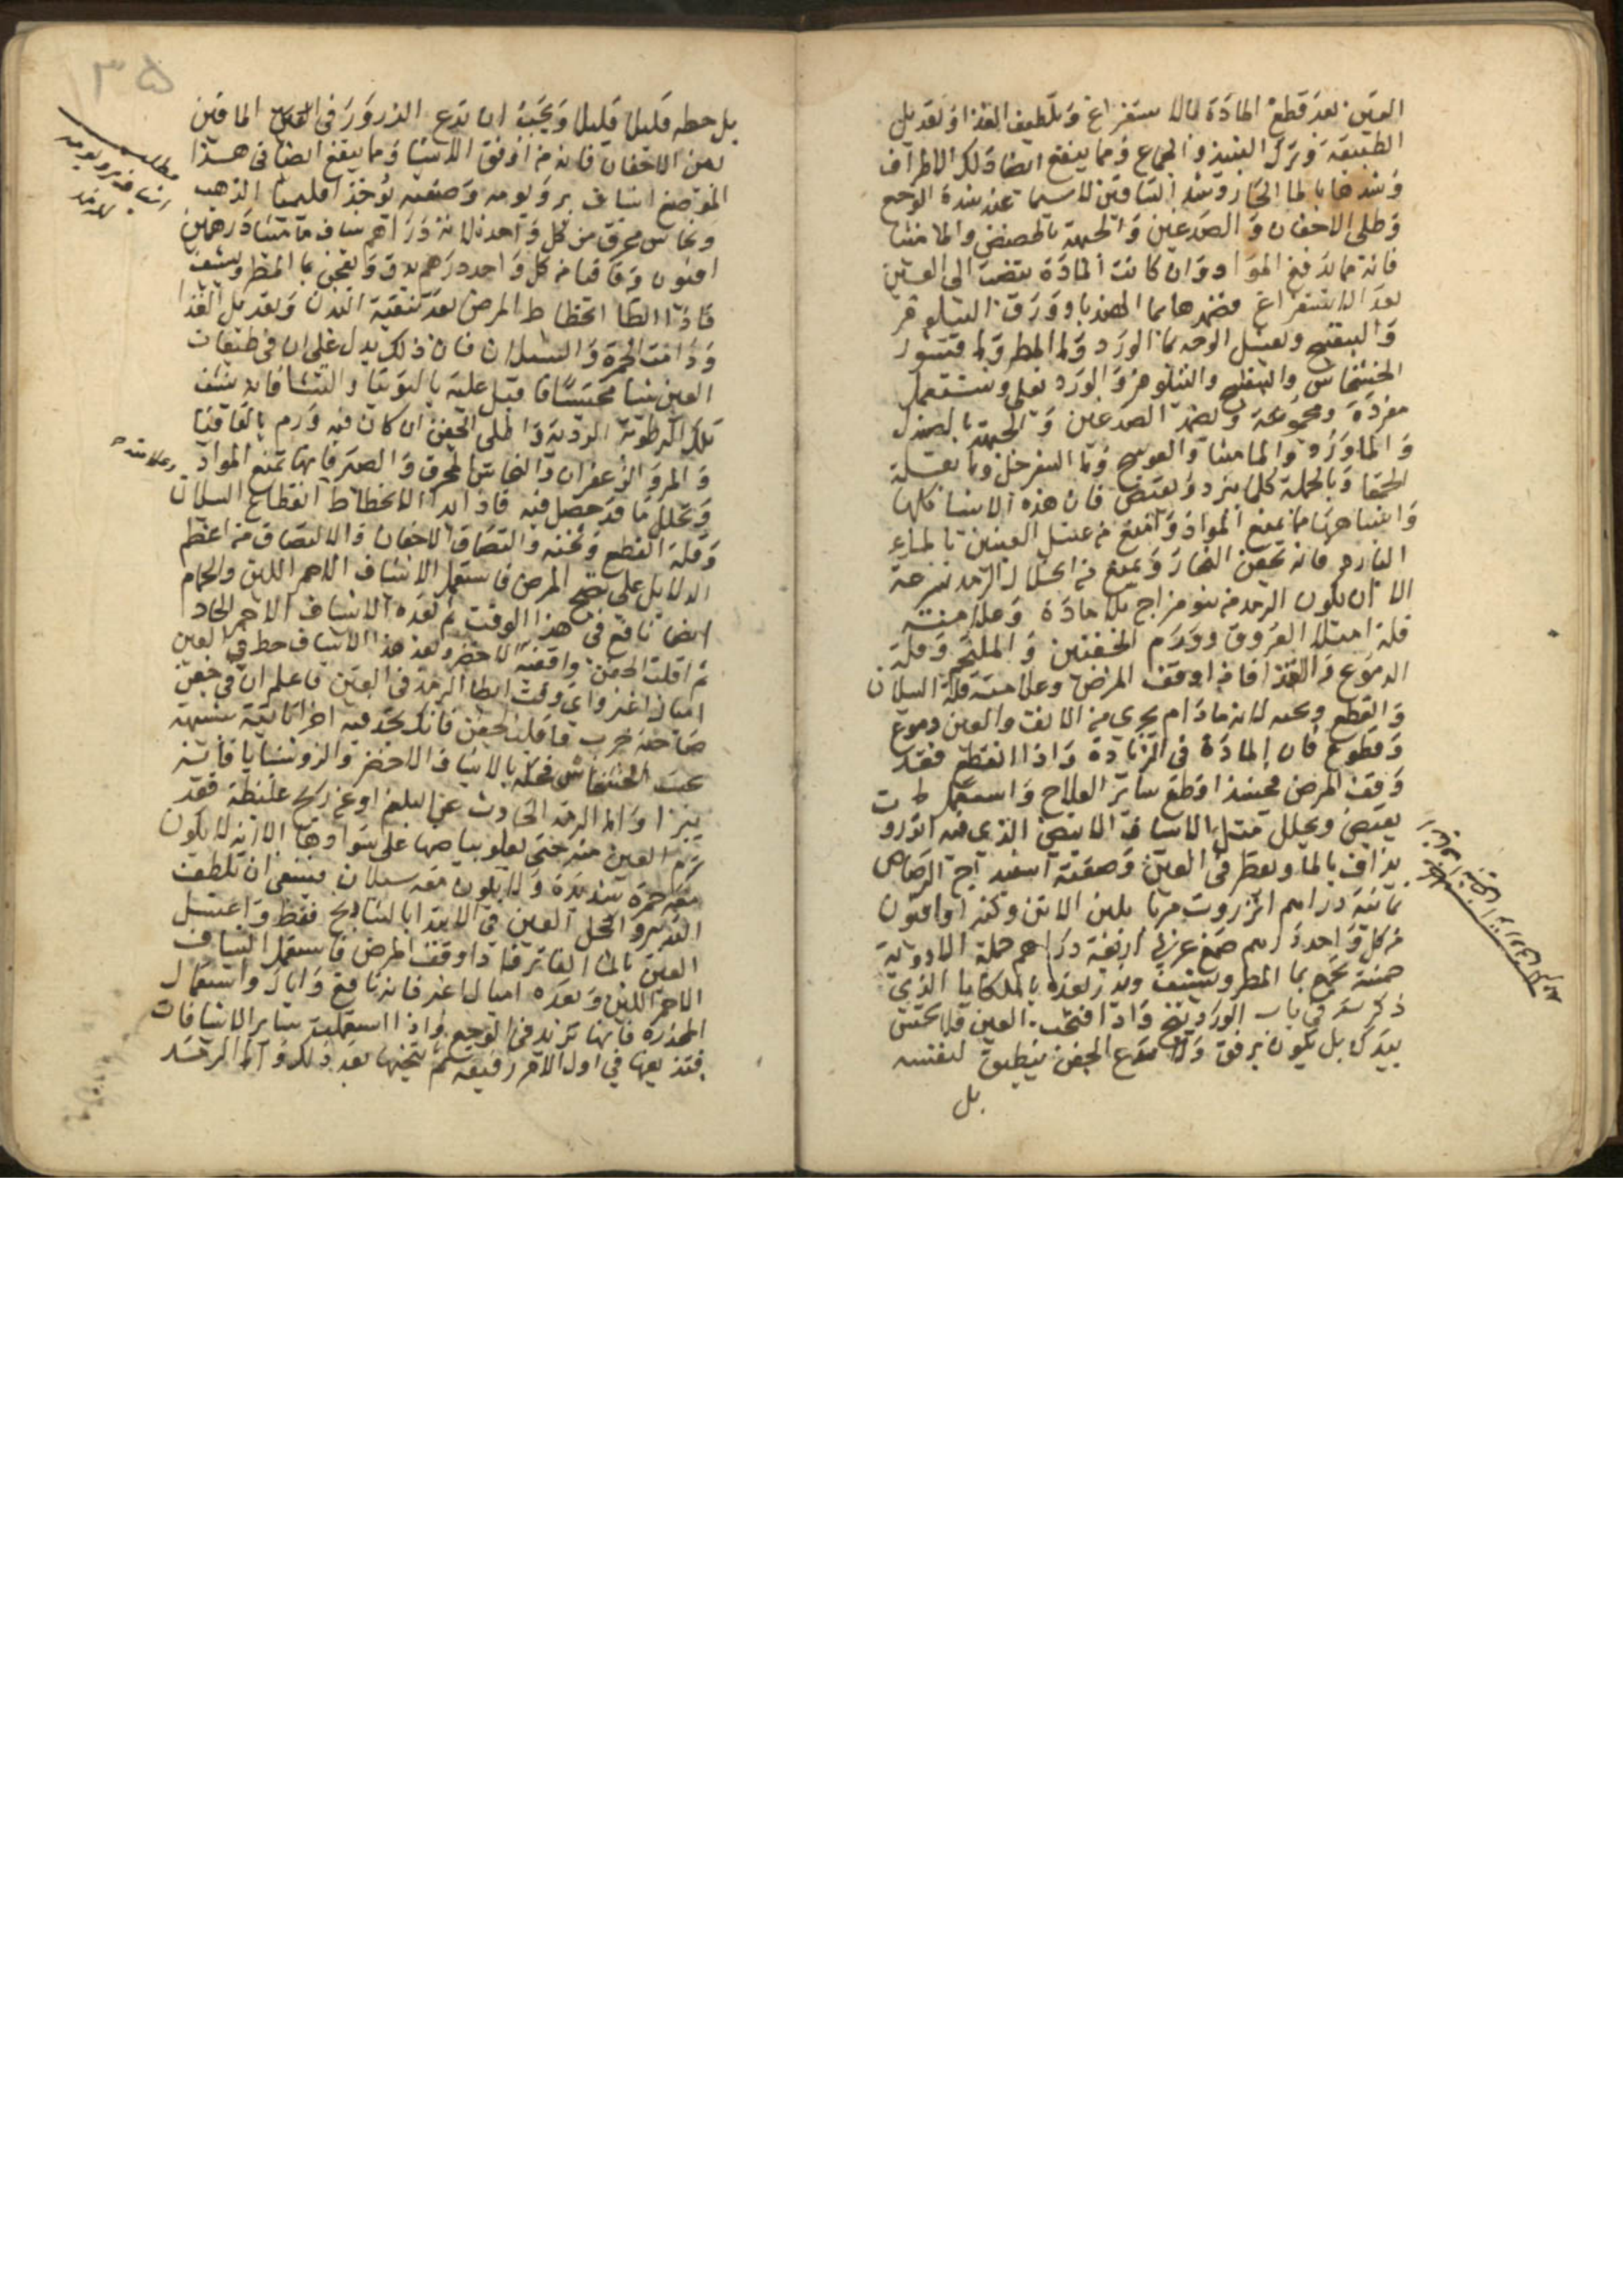 العين بعد قطع المادة بالاستفراغ وتلطيف الغذا وتعديل
الطبيعة وترك النبيذ والجماع ومما ينفع ايضا دلك الاطراف
وشدها بالما الحار وشد الساقين لا سيما عند شدة الوجع
وطلي الاجفان والصدغين والجبهة بالحضض والماميثا
فانه مما يدفع المواد وان كانت المادة تنصب الى العين
بعد الاستفراغ فضمدها بما الهندبا وورق النيلوفر
والبنفسج وتغسل الوجه بما الورد وما المطر وما قشور
الخشخاش والبنفسج والنيلوفر والورد تغلى وتستعمل
مفردة ومجموعة وتضمد الصدغين والجبهة بالصندل
والماورد والماميثا والعوسج وما السفرجل وما بقلة
الحمقا وبالجملة كلما يبرد ويقبض فان هذه الاشيا كلها
واشباهها مما يمنع المواد وامنع من غسل العينين بالماء
البارد فانه يحقن البخار ويمنع من انحلال الرمد بسرعة
الا ان يكون الرمد من سو مزاج بلا مادة وعلامته
قلة امتلا العروق وورم الجفنين والملتحم وقلة
الدموع والقذا فاذا وقف المرض وعلامته قلة السيلان
والقطع وثخنه لانه مادام يجري من الانف والعين دموع
وقطوع فان المادة في الزيادة واذا انقطع فقد
وقف المرض فحينئذ اقطع ساير العلاج واستعمل ما
يقبض ويحلل مثل الاشياف الابيض الذي فيه انزروت
يداف بالما ويقطر في العين وصفته اسفيداج الرصاص
ثمانية دراهم انزروت مربا بلبن الاتن وكثيرا وافيون
من كل واحد درهم صمغ عربي اربعة دراهم جملة الادوية
خمسة تجمع بما المطر ويشيف ويذر بعده بالملكايا الذي
ذكرته في باب الوردينج واذا فتحت العين فلا تخشن
بيدك بل تكون برفق ولا تدع الجفن ينطبق لنفسه
بل
٣٥
بل حطه قليلا قليلا ويجب ان تدع الذرور في الماقين
بين الاجفان فانه من اوفق الاشيا ومما ينفع ايضا في هذا
الموضع اشياف بر ويومه وصفته يوخذ اقليميا الذهب
ونحاس محرق من كل واحد ثلاثة دراهم شياف ماميثا درهمين
افيون وقاقيا من كل واحد درهم يدق ويعجن بما المطر ويشيف
فاذا ابطا انحطاط المرض بعد تنقية البدن وتعديل الغذا
ودامت الحمرة والسيلان فان ذلك يدل على ان في طبقات
العين شيا محتبسا فاقبل عليه بالتوتيا والنشا فانه ينشف
تلك الرطوبة الردية واطلي الجفن ان كان فيه ورم بالقاقيا
والمر والزعفران والنحاس المحرق والصبر فانها تمنع المواد
وتحلل ما قد حصل فيه فاذا ابدا الانحطاط انقطاع السيلان
وقلة القطع وثخنه والتصاق الاجفان والالتصاق من اعظم
الدلايل على نضج المرض فاستعمل الاشياف الاحمر اللين والحمام
ايضا نافع في هذا الوقت ثم بعده الاشياف الاحمر الحاد
ثم اقلب الجفن واقفه الاخضر وبعد هذا الاشياف حط في العين
اميال اغبر واي وقت ابطا الرمد في العين فاعلم ان في جفن
صاحبه جرب فاقلب الجفن فانك تجد فيه اجزا ناتية شبيهة
بحب الخشخاش فحكه بالاشياف الاخضر والروشنايا فانه
يبرا واما الرمد الحادث عن البلغم او عن ريح غليظة فقد
ترم العين منه حتى يعلو بياضها على سوادها الا انه لا يكون
معه حمرة شديدة ولا يكون معه سيلان فينبغي ان تلطف
التدبير واكحل العين في الابتدا بالشادنج فقط واغسل
العين بالما الفاتر فاذا وقف المرض فاستعمل الشياف
الاحمر اللين وبعده اميال اغبر فانه نافع واياك واستعمال
المخدرة فانها تزيد في الوجع واذا استعملت ساير الاشيافات
فتذيبها في اول الامر رقيقة ثم تثخنها بعد ذلك واما الرمد
مطلب
اشياف بر ويومه
للرمد
وعلامته